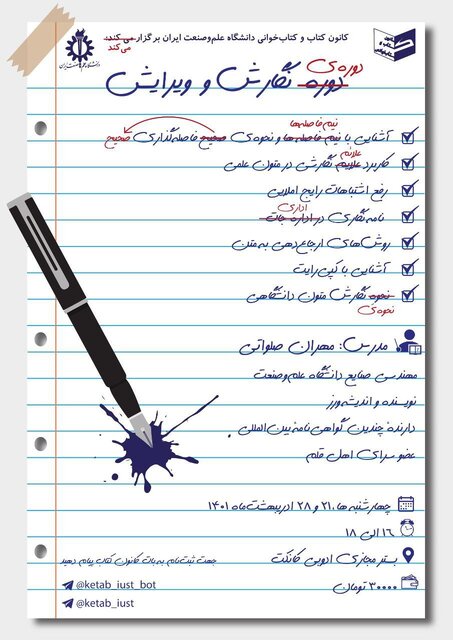 کانون کتاب و کتاب‌خوانی دانشگاه علم‌وصنعت ایران برگزار می‌کند:
می‌کند
دوره‌ی
دوره نگارش و ویرایش
نیم‌فاصله‌ها
آشنایی با نیم فاصله ها و نحوه‌ی صحیح فاصله‌گذاری صحیح
علائم
کاربرد علایم نگارشی در متون علمی
رفع اشتباهات رایج املایی
اداری
نامه‌نگاری در اداره جات
روش‌های ارجاع‌دهی به متن
آشنایی با کپی‌رایت
نحوه نگارش متون دانشگاهی
نحوه‌ی
مدرس: مهران صلواتی
مهندسی صنایع دانشگاه علم‌وصنعت
نویسنده و اندیشه‌ورز
دارندهٔ چندین گواهی‌نامه بین‌المللی
عضو سرای اهل قلم
چهارشنبه ها، ۲۱ و ۲۸ اردیبهشت‌ماه ۱۴۰۱
۱۶ الی ۱۸
بستر مجازی ادوبی کانکت
جهت ثبت‌نام به بات کانون کتاب پیام دهید
۳۰۰۰۰ تومان
@ketab_iust_bot
@ketab_iust